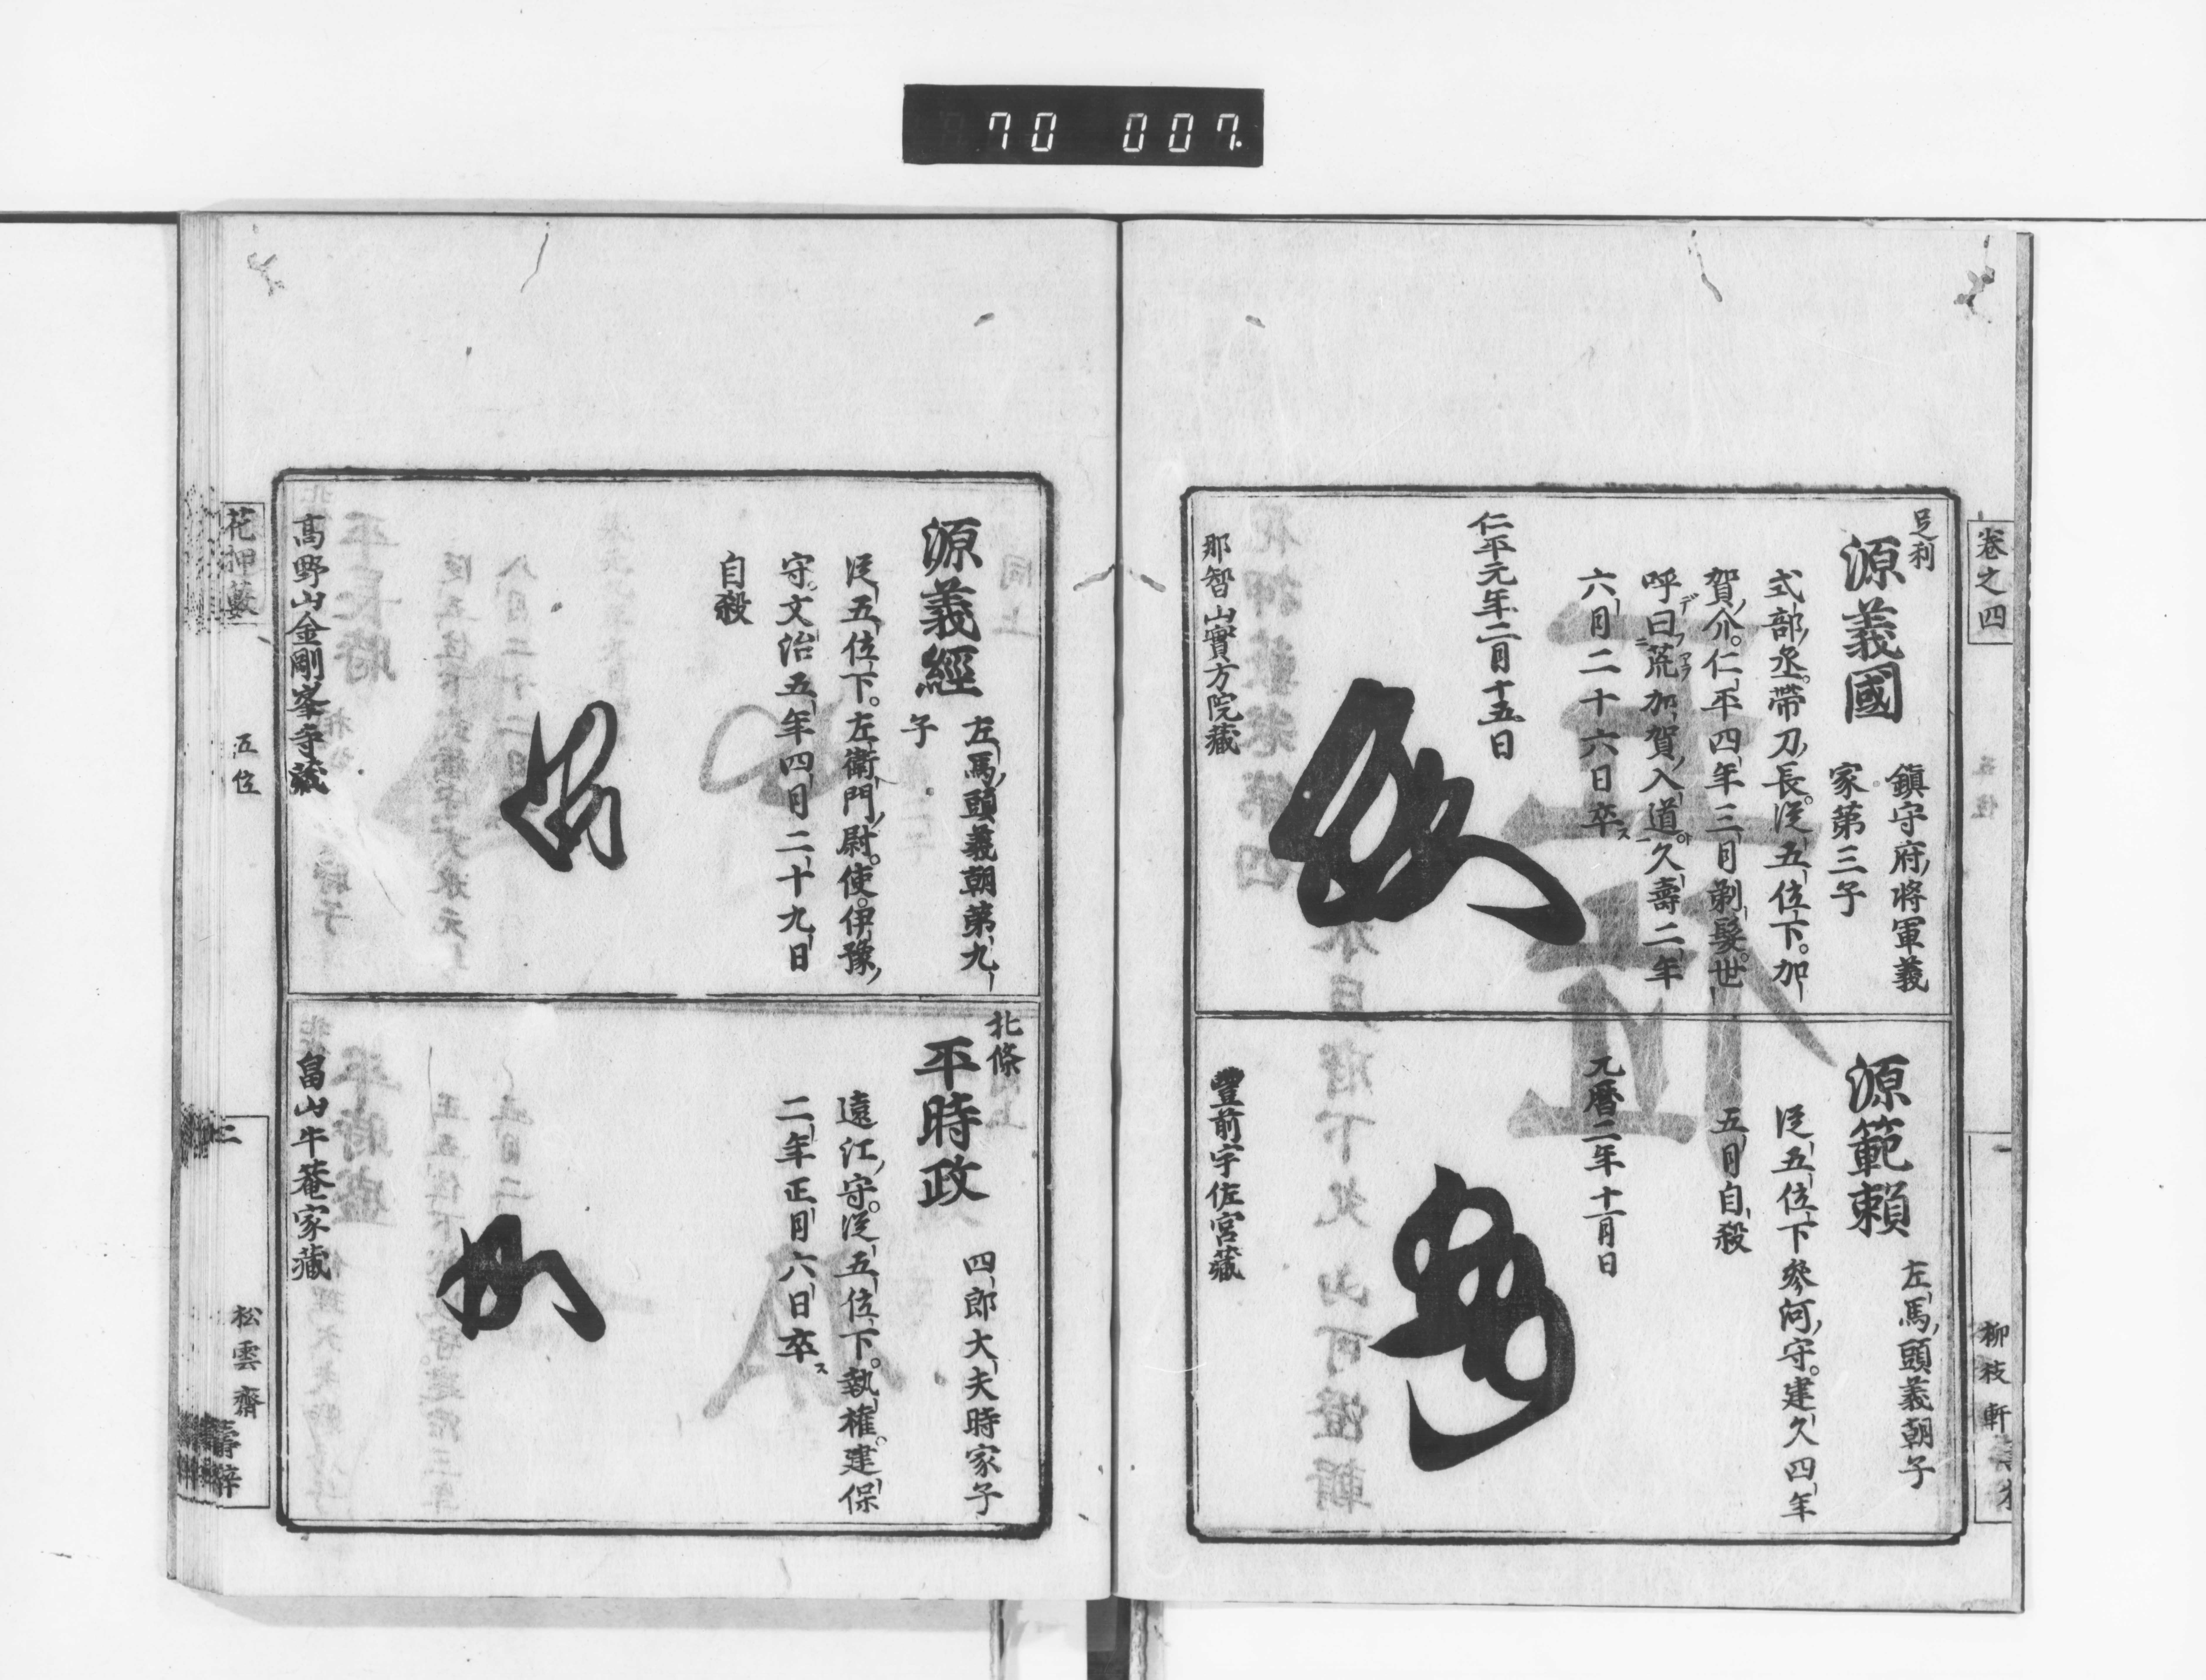 70 007.
卷之四
柳枝軒
足利
源義國
鎮守府將軍義
家第三子
式部丞。帶刀長。従五位下。加
賀介。仁平四年三月剃髮。世
呼曰荒加賀入道。久壽二年
六月二十六日卒ス
仁平元年二月十五日
那智山實方院藏
源範賴
左馬頭義朝子
従五位下參河守。建久四年
五月自殺
元曆二年十一月日
豊前宇佐宮藏
源義經
左馬頭義朝第九
子
従五位下。左衛門尉。使。伊豫
守。文治五年四月二十九日
自殺
高野山金剛峯寺藏
北條
平時政
四郎大夫時家子
遠江守。従五位下。執權。建保
二年正月六日卒ス
畠山牛菴家藏
花押藪
五位
二
松雲齋
壽梓